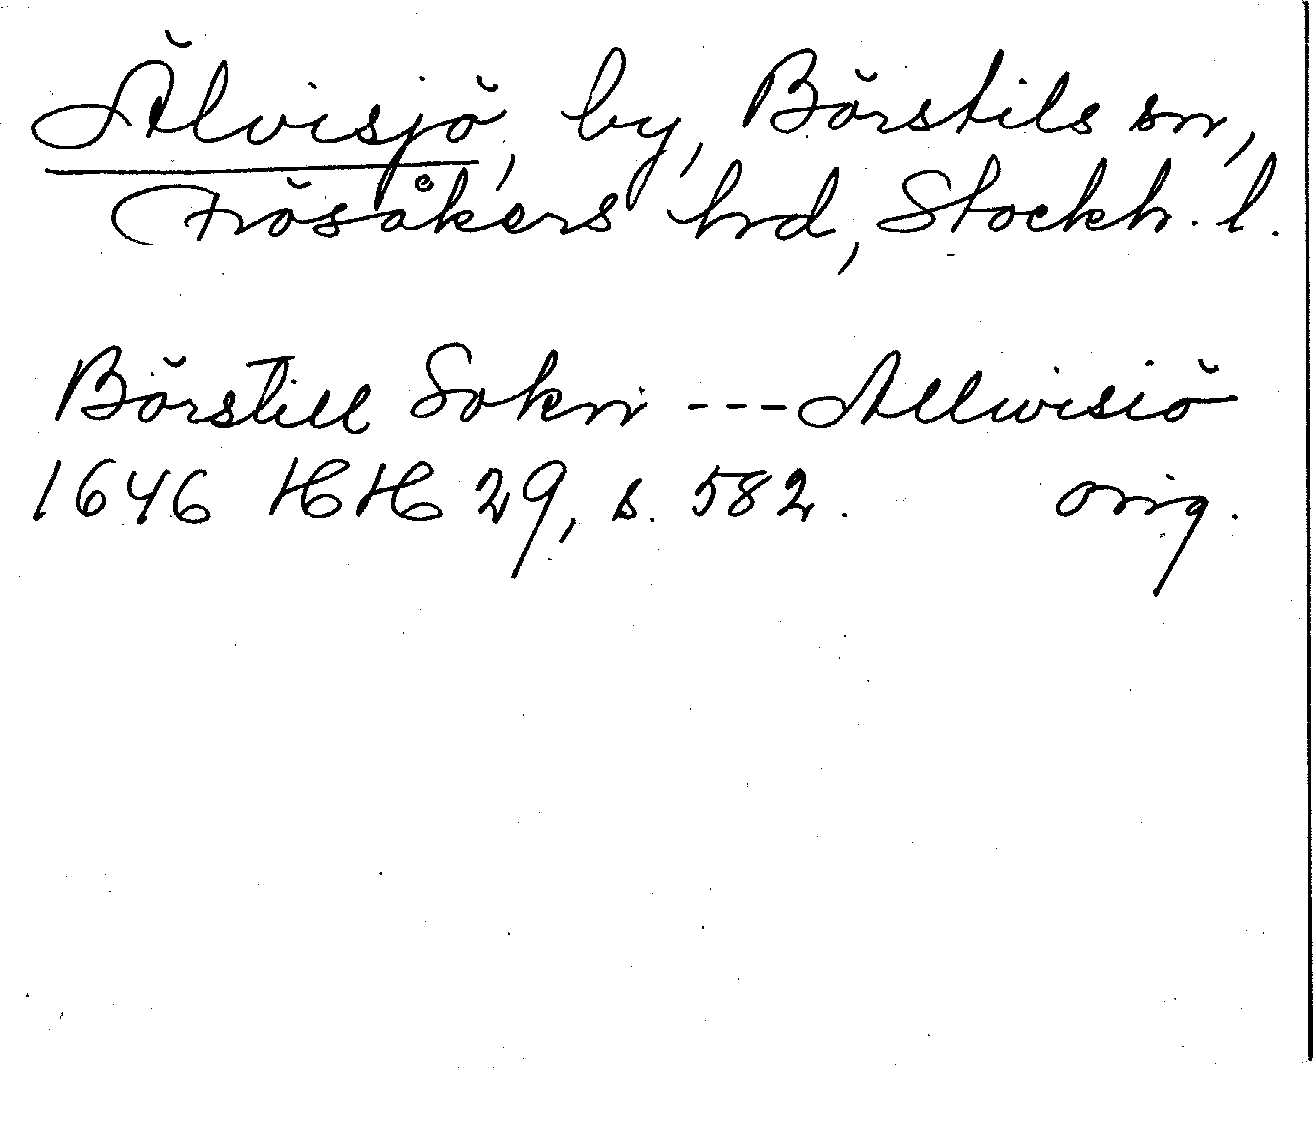 Älvisjö, by, Börstils sn,
Frösåkers hrd, Stockh. l.
Börstill Sokn --- Allwisiö
1646 HH 29, s. 582. orig.